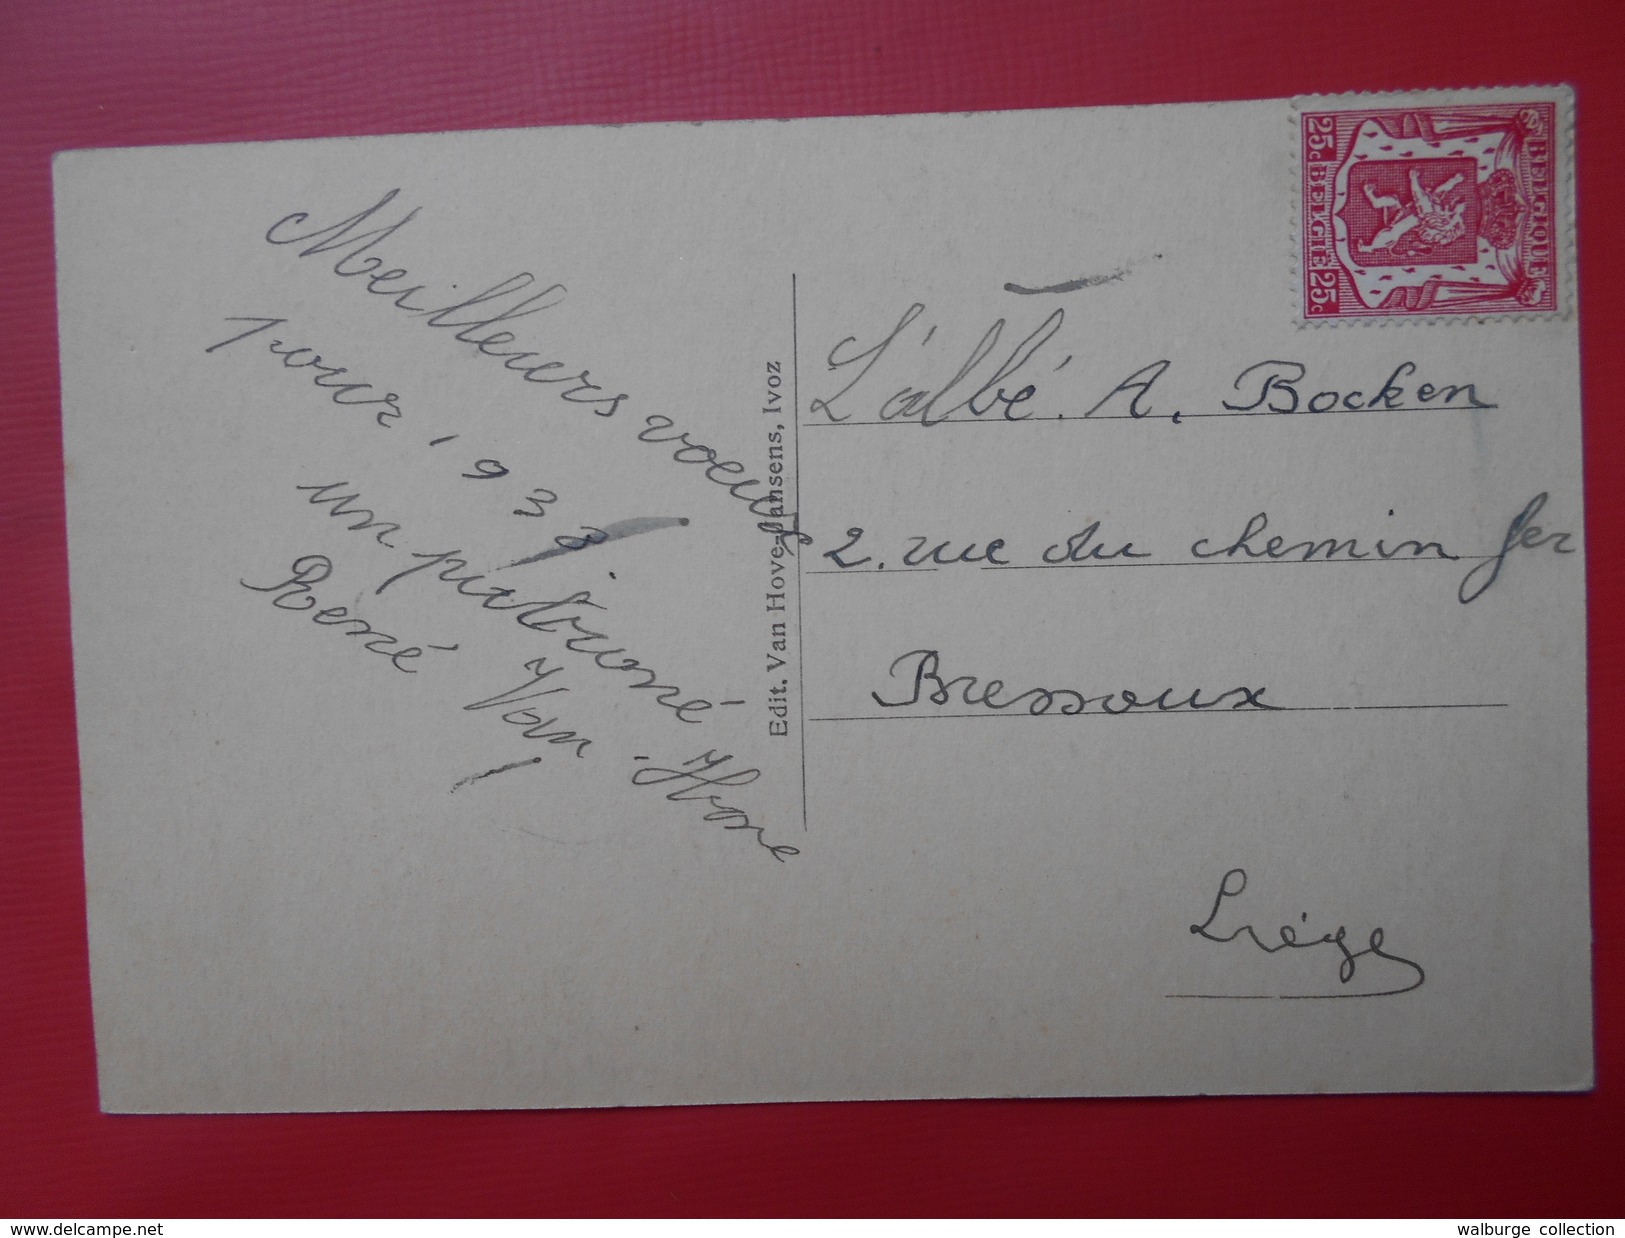 Meilleurs voeux
pour 1933
un patronné
René Van Hove
Edit. Van Hove-Jansens, Ivoz
L'abbé. A. Bocken
2. rue du chemin fer
Bressoux
Liége
BELGIQUE
25c BELGIE 25c
www.delcampe.net
walburge collection